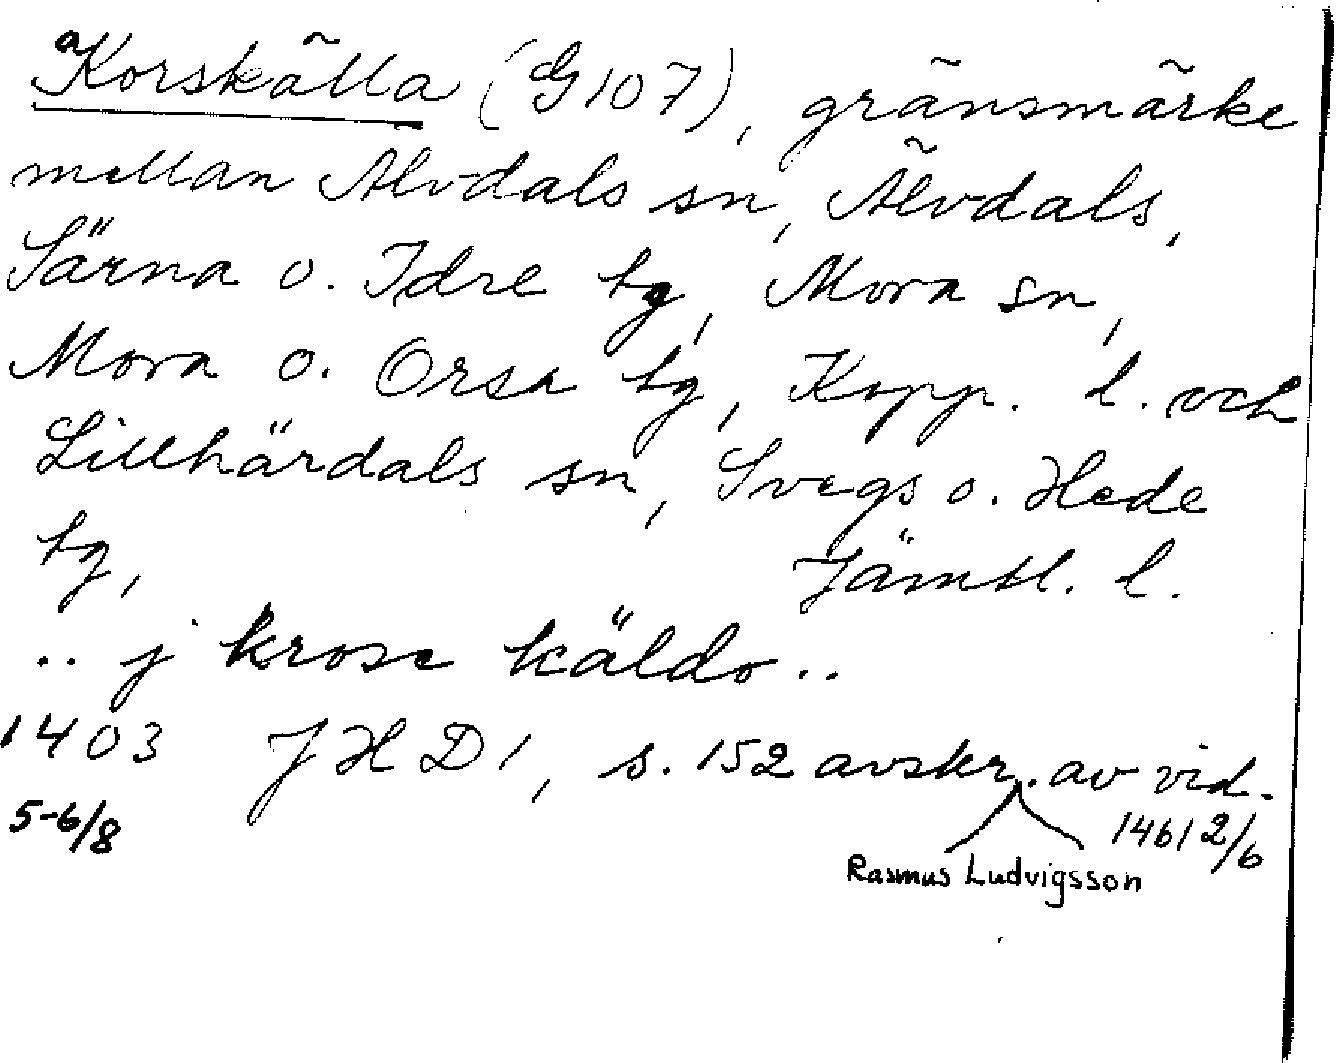 aKorskälla (G107), gränsmärke
mellan Älvdals sn, Älvdals,
Särna o. Idre tg, Mora sn,
Mora o. Orsa tg, Kopp. l. och
Lillhärdals sn, Svegs o. Hede
tg, Jämtl. l.
.. j krose käldo ..
1403 JHD1, s. 152 avskr. av vid.
5-6/8 1461 2/6
Rasmus Ludvigsson